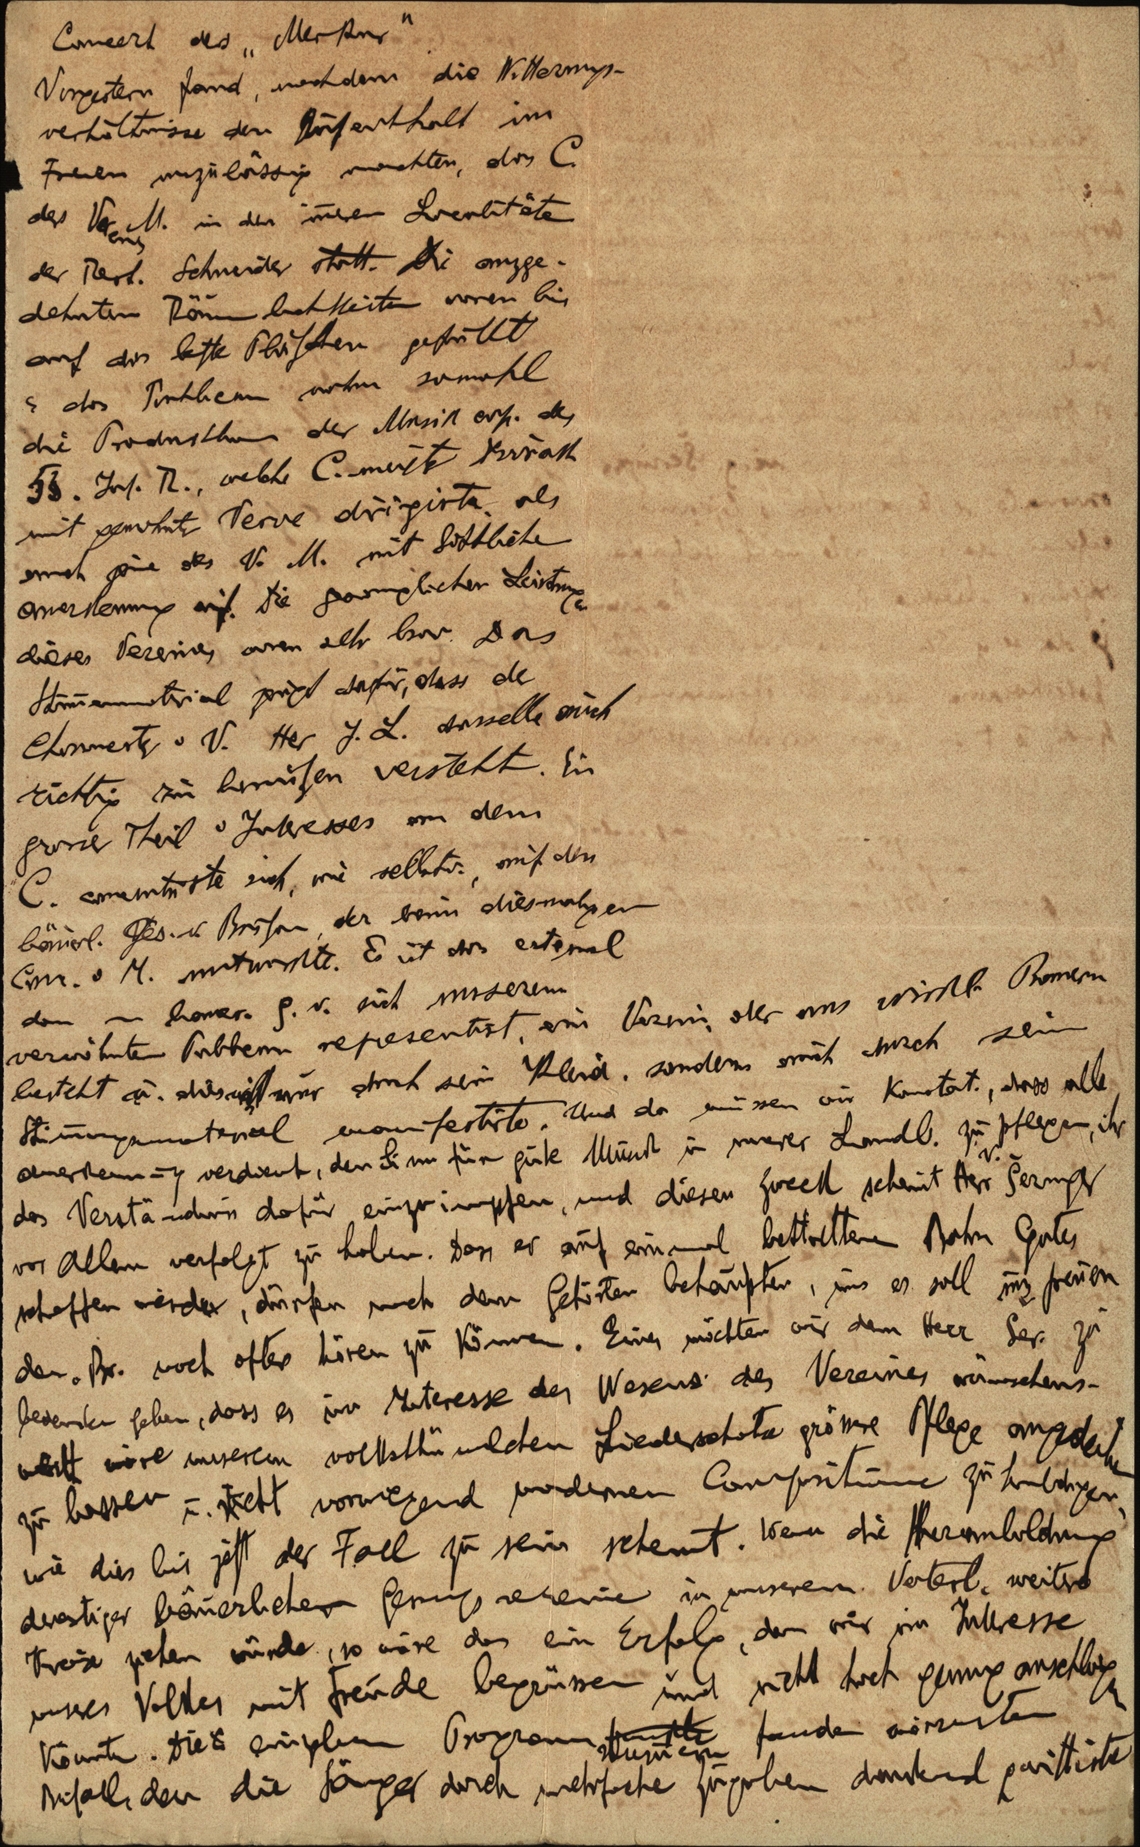 Concert des „Merkur"
Vorgestern fand, nachdem die Witterungs-
verhältnisse den Aufenthalt im
Freien unzulässig machten, das C.
des Vereins M. in den inneren Localitäten
der Rest. Schneider statt. Die ausge-
dehnten Räumlichkeiten waren bis
auf das letzte Plätzchen gefüllt
u das Publicum nahm sowohl
die Production der Musik cap. des
53. Inf. R., welche C.meister
mit gewohnter Verve dirigirte, als
auch jene des V. M. mit
anerkennung auf. Die gesanglichen Leistungen
dieses Vereines waren sehr brav. Das
Stimmenmaterial zeigt dafür, dass der
Chormeister v V. Herr J. L. dasselbe auch
richtig zu benützen versteht. Ein
grosser Theil v Interesses an dem
C. concentrirte sich, wie selbstv., auf den
bäuerl. Ges. v. der beim diesmaligen
Conc. v M. mitwirkte. Es ist das erstemal
dan sich unserem
verwöhnten Publicum representirt, ein Verein, der aus wirkl. Bauern
besteht u. dies nicht nur durch sein Kleid, sondern auch durch sein
Stimmungsmaterial manifestirte. Und da müssen wir Konstat., dass alle
anerkennung verdient, den Sinn für gute Musik in unserer Landb. zu pflegen, ihr
das Verständnis dafür einzuimpfen, und diesen Zweck scheint Herr v.
vor Allem verfolgt zu haben. Dass er auf einmal betrettener Bahn Gutes
schaffen werder, dürfen nach dem Gehörten behaupten, uns es soll uns freuen
den Br. noch öfter hören zu Können. Eines möchten wir dem Herr Ser. zu
bedenken geben, dass es im Interesse des Wesens des Vereines wünschens-
wert wäre unserem volksthümlichen Liederschatze grössere Pflege angedeihen
zu lassen u. nicht vorwiegend modernen Compositionen zu huldigen,
wie dies bis jetzt der Fall zu sein scheint. Wenn die Heranbildung
derartiger bäuerlicher Gesangsvereine in unserem Vaterl. weitere
Kreise ziehen würde, so wäre das ein Erfolg, den wir im Interesse
unseres Volkes mit Freude begrüssen und nicht hoch genug anschlagen
könnten. Die einzelnen Programmnummern fanden wärmsten
Beifall, den die Sänger durch mehrfache Zugaben dankend quittirten